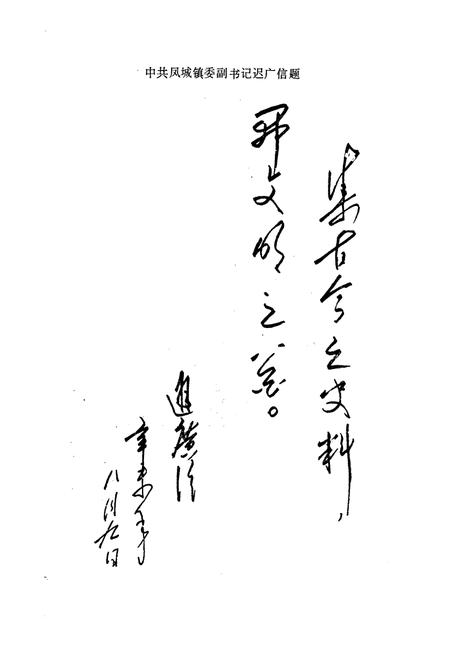 中共凤城镇委副书记迟广信题
集古今之史料，
文明之
遲廣信
辛未年
八月九日